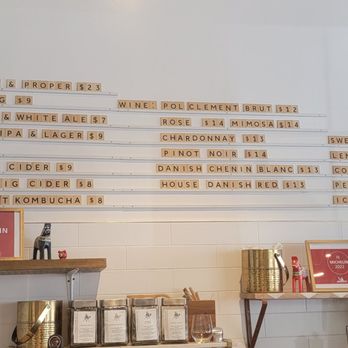 & PROPER $23
G $9
& WHITE ALE $7
IPA & LAGER $9
CIDER $9
IG CIDER $8
T KOMBUCHA $8
WINE: POL CLEMENT BRUT $12
ROSE $14 MIMOSA $14
CHARDONNAY $13
PINOT NOIR $14
DANISH CHENIN BLANC $13
HOUSE DANISH RED $13
SWE
LEM
CO
PE
IC
IN
MICHELIN
2022